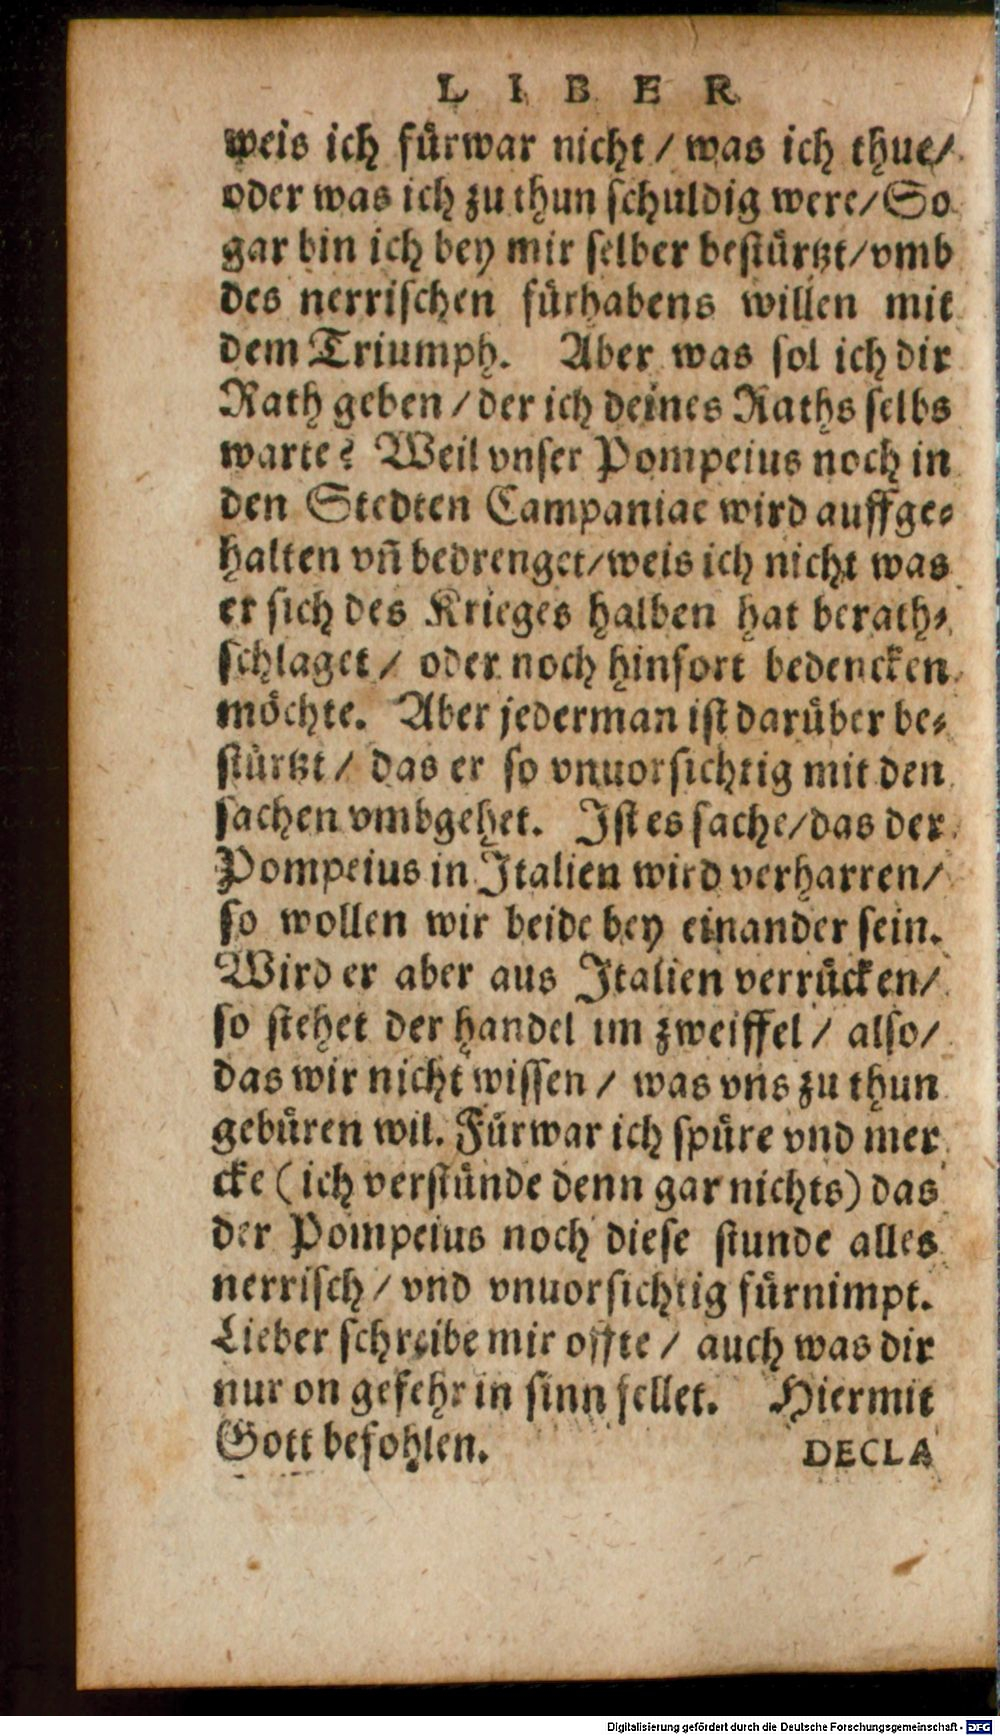 L I B E R
weis ich fürwar nicht / was ich thue/
oder was ich zu thun schuldig were/So
gar bin ich bey mir selber bestürtzt/vmb
des nerrischen fürhabens willen mit
dem Triumph. Aber was sol ich dir
Rath geben / der ich deines Raths selbs
warte? Weil vnser Pompeius noch in
den Stedten Campaniae wird auffge⸗
halten vn̄ bedrenget/weis ich nicht was
er sich des Krieges halben hat berath⸗
schlaget / oder noch hinfort bedencken
möchte. Aber jederman ist darüber be⸗
stürtzt / das er so vnuorsichtig mit den
sachen vmbgehet. Ist es sache/das der
Pompeius in Italien wird verharren/
so wollen wir beide bey einander sein.
Wird er aber aus Italien verrücken/
so stehet der handel im zweiffel / also/
das wir nicht wissen / was vns zu thun
gebüren wil. Fürwar ich spüre vnd mer
cke ( ich verstünde denn gar nichts) das
der Pompeius noch diese stunde alles
nerrisch / vnd vnuorsichtig fürnimpt.
Lieber schreibe mir offte / auch was dir
nur on gefehr in sinn fellet. Hiermit
Gott befohlen. DECLA
Digitalisierung gefördert durch die Deutsche Forschungsgemeinschaft - DFG